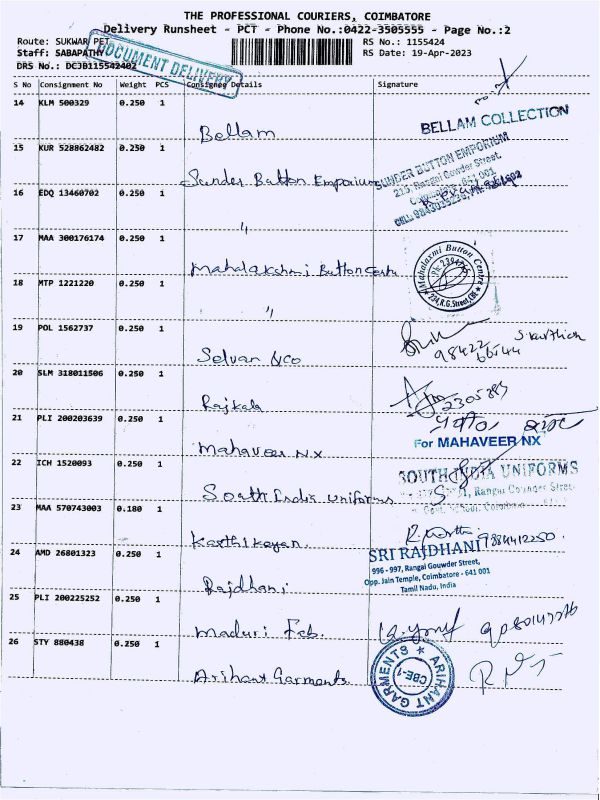 THE PROFESSIONAL COURIERS, COIMBATORE
Delivery Runsheet - PCT - Phone No.:0422-3505555 - Page No.:2
Route: SUKWAR PET
RS No.: 1155424
Staff: SABAPATHY
RS Date: 19-Apr-2023
DRS No.: DCJB115542402
DOCUMENT DELIVERY
S No Consignment No Weight PCS Consignee Details Signature
14 KLM 500329 0.250 1
Bellam
BELLAM COLLECTION
15 KUR 528862482 0.250 1
Sunder Button Emporium
SUNDER BUTTON EMPORIUM
215, Rangai Gowder Street,
Coimbatore - 641 001
16 EDQ 13460702 0.250 1
"
17 MAA 300176174 0.250 1
Mahalakshmi Button Centre
Mahalaxmi Button Centre
Ph: 2394765
234, R.G. Street, CBE
18 MTP 1221220 0.250 1
"
19 POL 1562737 0.250 1
Selvan & Co
98422
66544
20 SLM 318011506 0.250 1
Rajkala
2305385
21 PLI 200203639 0.250 1
Mahaveer NX
For MAHAVEER NX
22 ICH 1520093 0.250 1
South India Uniforms
SOUTH INDIA UNIFORMS
23 MAA 570743003 0.180 1
Karthikeyan
9884412250.
24 AMD 26801323 0.250 1
Rajdhani
SRI RAJDHANI
996 - 997, Rangai Gouwder Street,
Opp. Jain Temple, Coimbatore - 641 001
Tamil Nadu, India
25 PLI 200225252 0.250 1
Maduri Feb.
26 STY 880438 0.250 1
Arihant Garments
ARIHANT GARMENTS
CBE-1